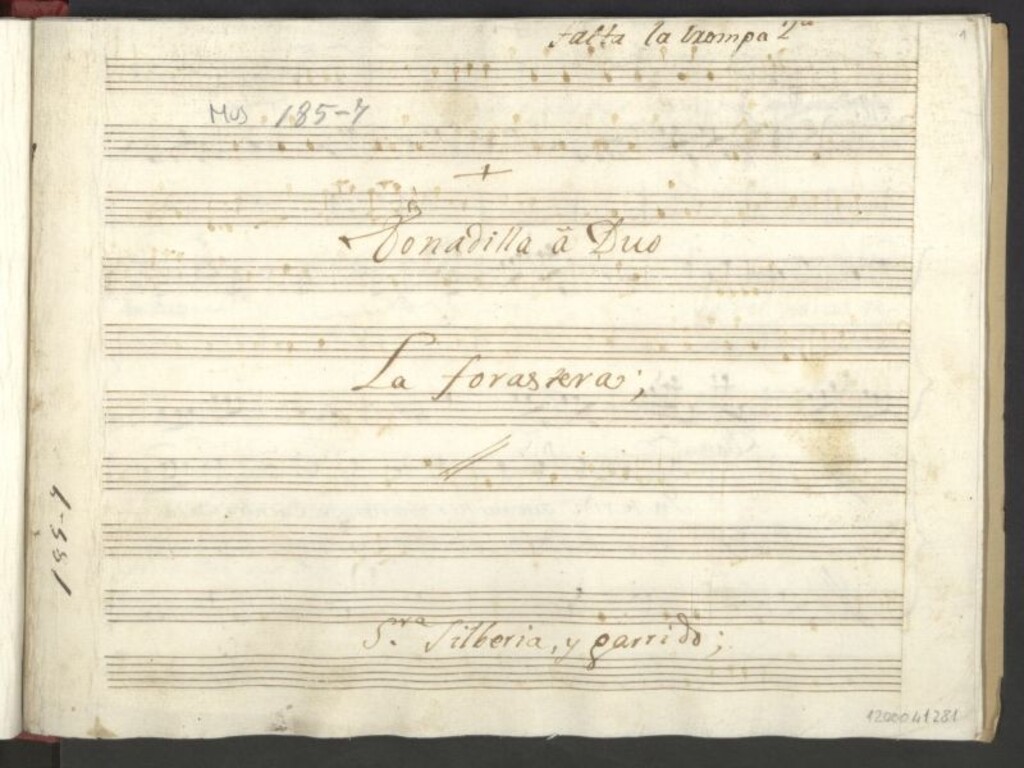 falta la trompa 2ª
1
Mus 185-7
Tonadilla â Duo
La forastera;
Sra. Silberia, y garrido;
185-7
1200041281